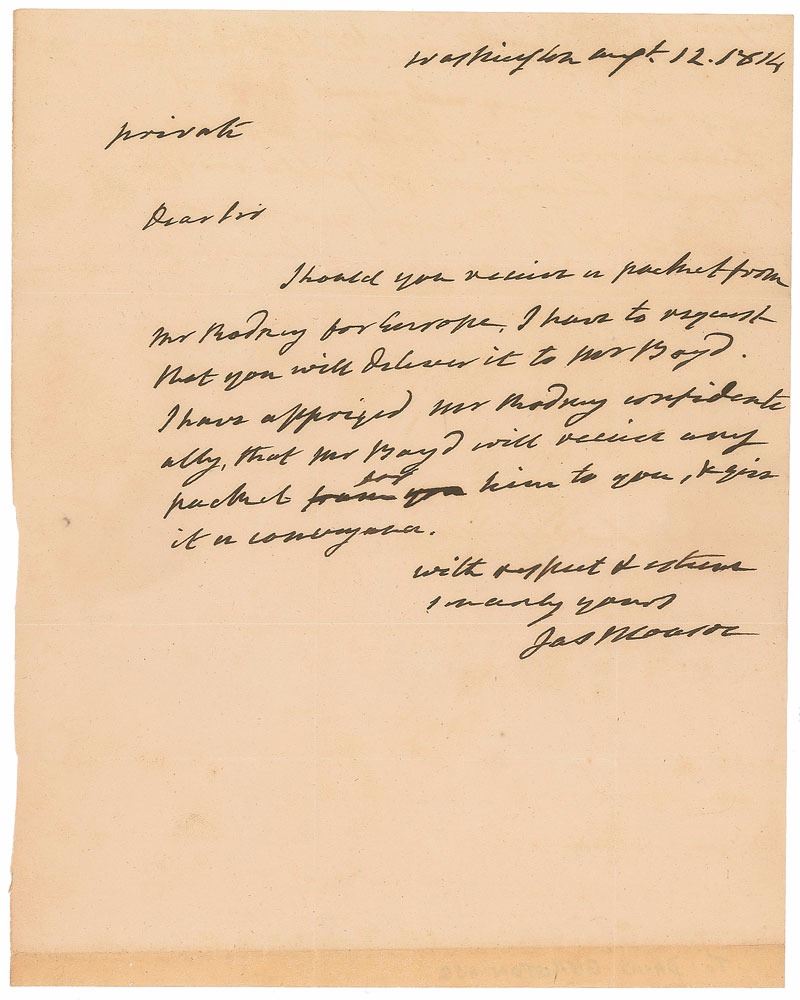 Washington augt. 12. 1814
private
Dear Sir
Should you receive a packet from
Mr Rodney for Europe, I have to request
that you will deliver it to Mr Boyd.
I have apprized Mr Rodney confidenti
ally, that Mr Boyd will receive any
packet from you him to you, & give
it a conveyance.
with respect & esteem
sincerely yours
Jas Monroe